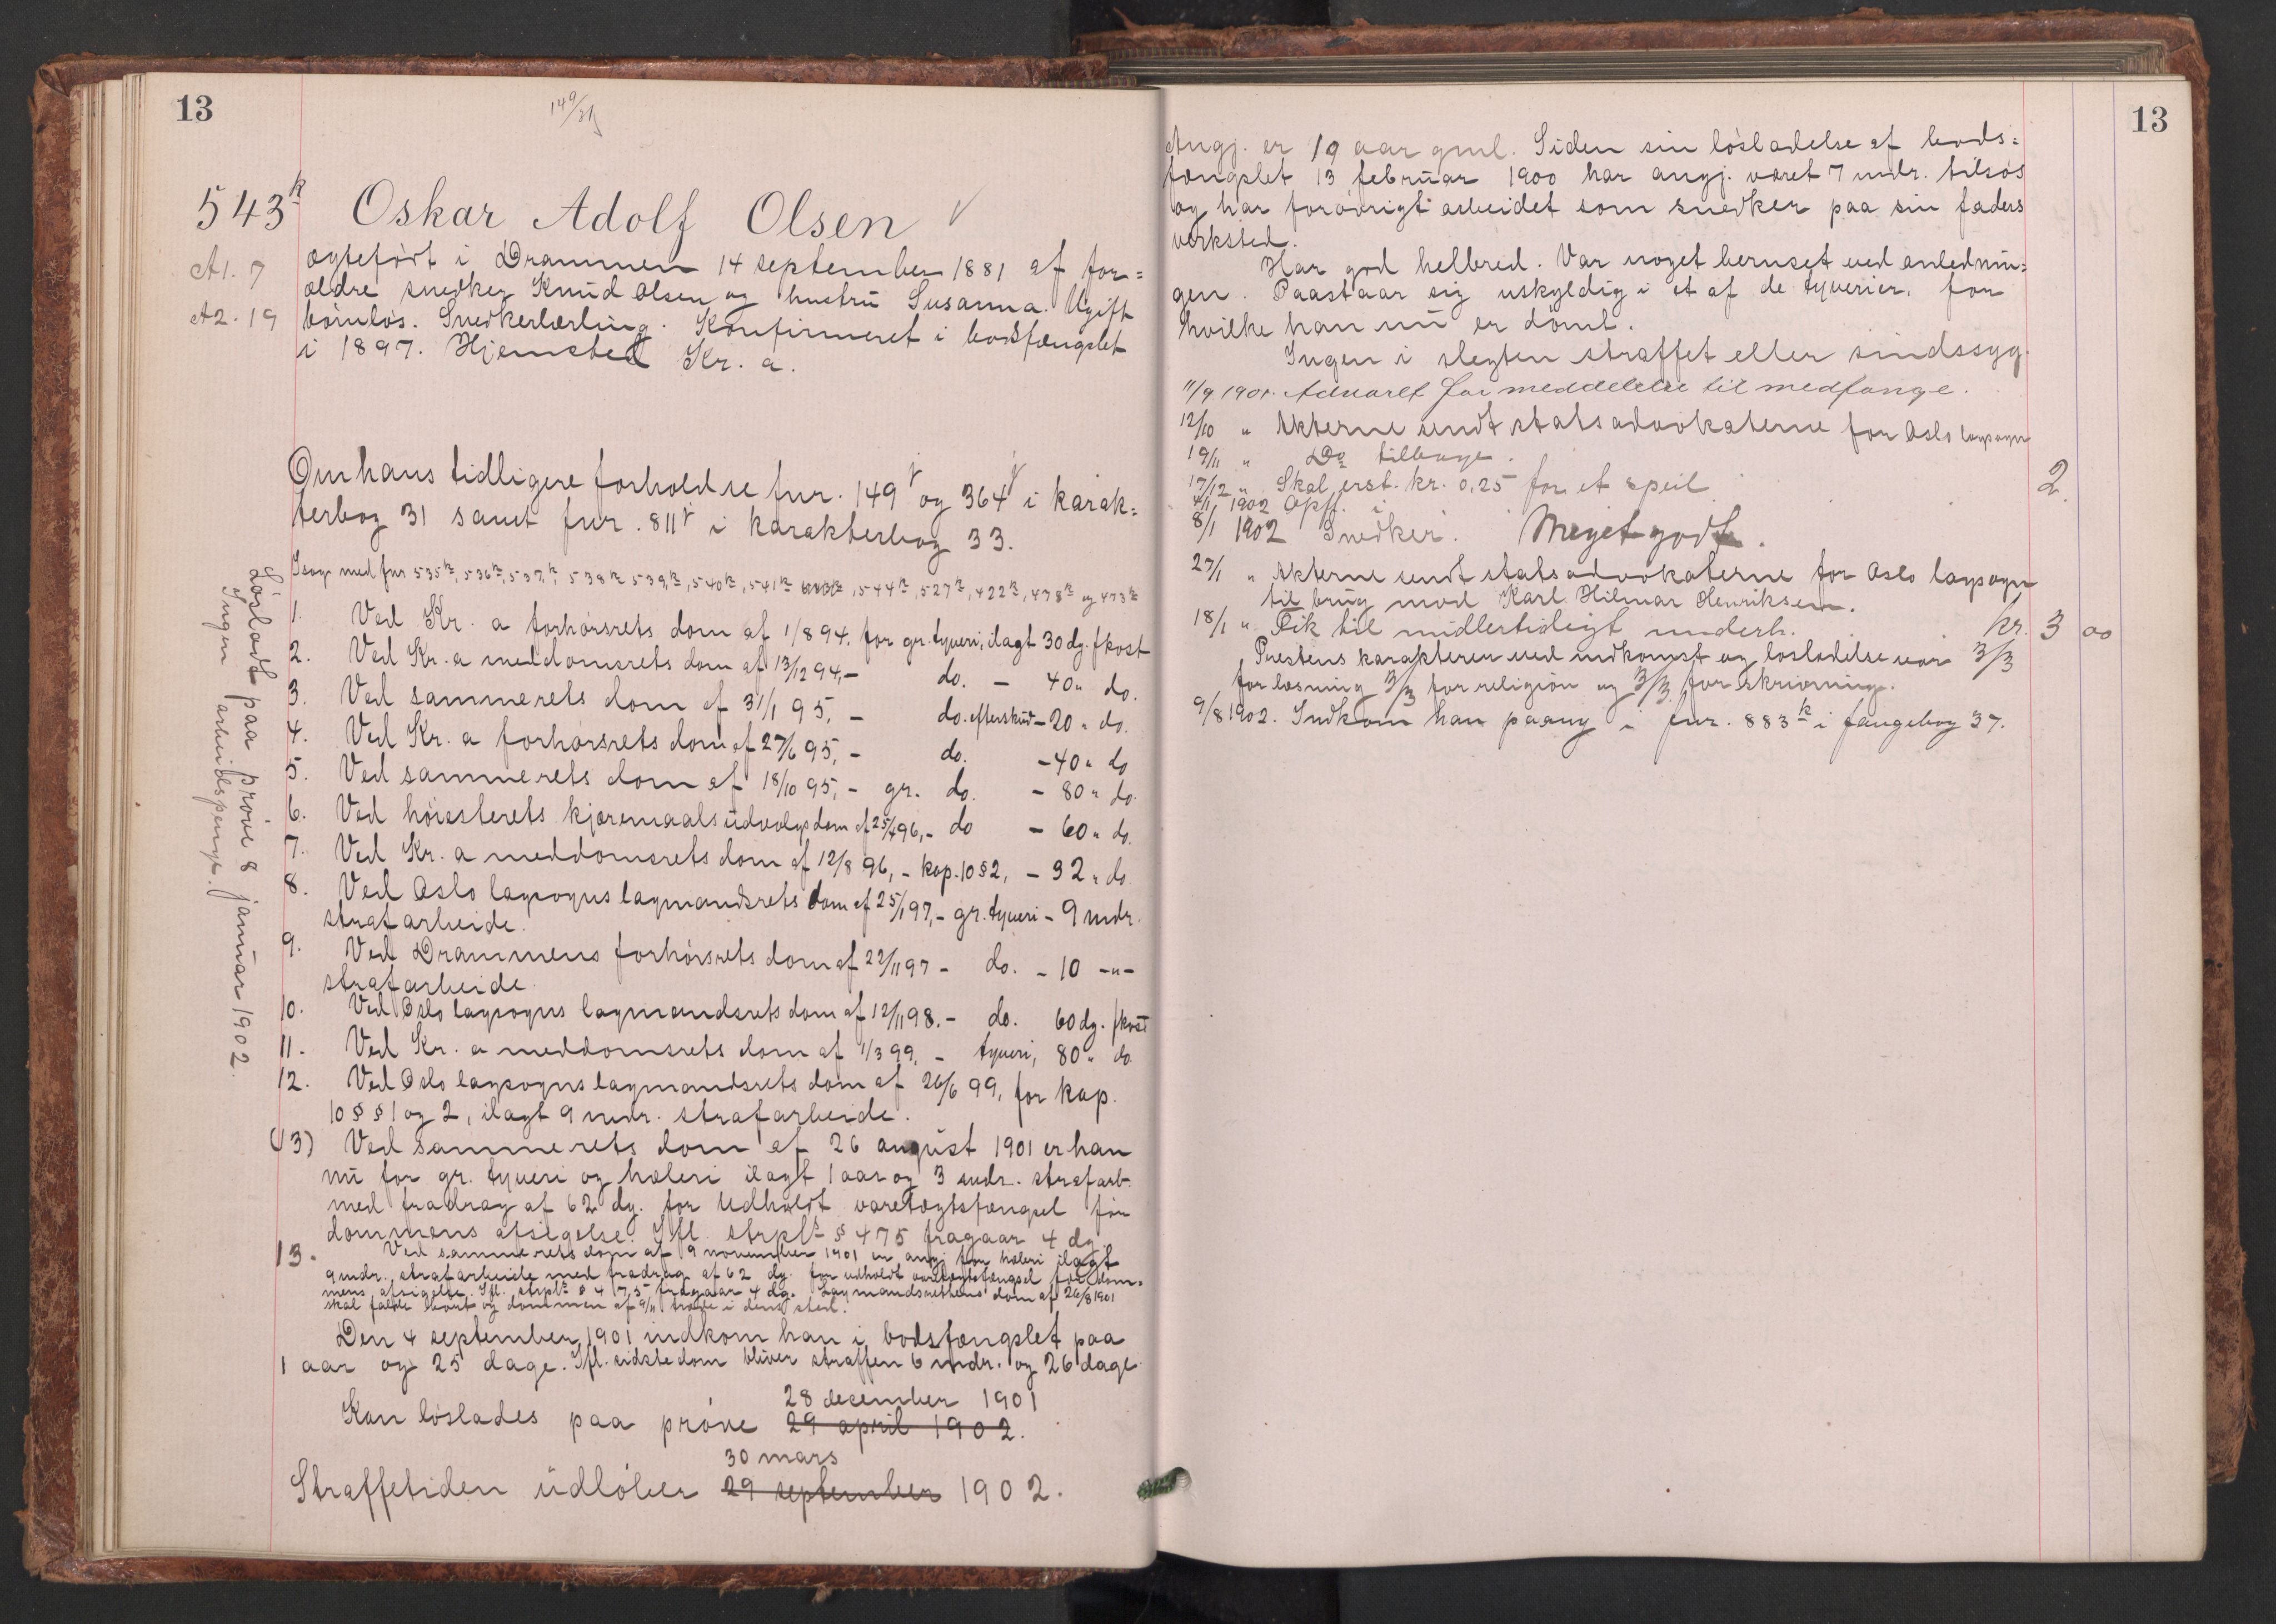 13
149/31
543k Oskar Adolf Olsen
A1. 7
A2. 19
ægtefødt i Drammen 14 september 1881 af for=
ældre snedker Knud Olsen og hustru Susanna. Ugift
børnløs. Snedkerlærling. Konfirmeret i bodsfængslet
i 1897. Hjemsted Kr. a.
Om hans tidligere forhold se fnr. 149 og 364 i karak=
terbog 31 samt fnr. 811 i karakterbog 33.
I sag med fnr 535k, 536k, 537k, 538k 539k, 540k, 541k, 544k, 527k, 422k, 478k og 473k
1. Ved Kr. a forhørsrets dom af 1/8 94, for gr. tyveri, ilagt 30 dg. fkost
2. Ved Kr. a meddomsrets dom af 13/12 94, - do. - 40 " do.
3. Ved samme rets dom af 31/1 95, - do. efterskud - 20 " do.
4. Ved Kr. a forhørsrets dom af 27/6 95, - do. - 40 " do
5. Ved samme rets dom af 18/10 95, - gr. do. - 80 " do.
6. Ved høiesterets kjæremaalsudvalgs dom af 25/4 96, - do - 60 " do.
7. Ved Kr. a meddomsrets dom af 12/8 96, - kap. 10 § 2, - 92 " do.
8. Ved Oslo lagsogns lagmandsrets dom af 25/1 97, - gr. tyveri - 9 mdr.
strafarbeide.
9. Ved Drammens forhørsrets dom af 22/11 97 - do. - 10 -"-
strafarbeide.
10. Ved Oslo lagsogns lagmandsrets dom af 12/11 98. - do. 60 dg. fkost
11. Ved Kr. a meddomsrets dom af 1/3 99, - tyveri, 80 " do.
12. Ved Oslo lagsogns lagmandsrets dom af 26/6 99, for kap.
10 § § 1 og 2, ilagt 9 mdr. strafarbeide.
(13) Ved samme rets dom af 26 august 1901 er han
nu for gr. tyveri og hæleri ilagt 1 aar og 3 mdr. strafarb.
med fradrag af 62 dg. for udholdt varetægtsfængsel før
dommens afsigelse. Ifl. strpl § 475 fragaar 4 dg.
13. Ved samme rets dom af 9 november 1901 er angj. for hæleri ilagt
9 mdr. strafarbeide med fradrag af 62 dg. for udholdt varetægtsfængsel før dom=
mens afsigelse. Ifl. strpl § 475 fragaar 4 dg. Lagmandsrettens dom af 26/8 1901
skal falde bort og dommen af 9/11 træde i dens sted.
Den 4 september 1901 indkom han i bodsfængslet paa
1 aar og 25 dage. Ifl. sidste dom bliver straffen 6 mdr. og 26 dage
28 desember 1901
Kan løslades paa prøve 29 april 1902.
30 mars
Straffetiden udløber 29 september 1902.
Løsladt paa prøve 8 januar 1902.
Ingen arbeidspenge.
13
Angj. er 19 aar gml. Siden sin løsladelse af bods=
fængslet 13 februar 1900 har angj. været 7 mdr. tilsøs
og har forøvrigt arbeidet som snedker paa sin faders
værksted.
Har god helbred. Var noget beruset ved anlednin=
gen. Paastaar sig uskyldig i et af de tyverier, for
hvilke han nu er dømt.
Ingen i slegten straffet eller sindssyg.
11/9 1901. Advaret for meddelelse til medfange.
12/10 " Akterne sendt statsadvokaterne for Oslo lagsogn
19/11 " Do tilbage.
17/12 " Skal erst. kr. 0,25 for et speil. 2.
4/1 1902 Opfl. i
8/1 1902 Snedker. Meget godt.
27/1 " Akterne sendt statsadvokaterne for Oslo lagsogn
til brug mod Karl Hilmar Henriksen.
18/1 " Fik til midlertidigt underh. kr. 3 00
Prestens karakterer ved indkomst og løsladelse var 3/3
for læsning 3/3 for religion og 3/3 for skrivning.
9/8 1902. Indkom han paany i fnr. 883k i fangebog 37.